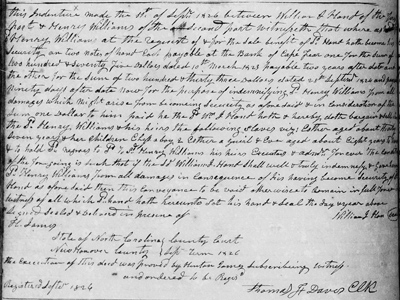 this Indenture made the 11th of Septr 1826 between William J Hand of the
part & Henry Williams of the second part Witnesseth that where as
Henry Williams at the request of & for the sole benefit of Sd Hand become his
Security on two notes of hand Each payable at the Bank of Cape Fear one for the Sum of
two hundred & Seventy five Dollars dated 10th March 1823 payable two years after date and
the other for the Sum of two hundred & thirty three Dollars dated 25th September 1824
Ninety days after date Now for the purpose of indemnifying Sd Henry Williams from all
damages which might arise from becoming Security as aforesaid & in consideration of the
Sum one dollar to him paid he the Sd Wm J Hand doth & hereby doth bargain
the Sd Henry Williams & his heirs the following slaves viz Esther aged about
years & her children a boy & Esther a girl & aged about Eight years to
to hold Sd negroes to Sd Henry Williams his heirs Executors & adms forever the
of the foregoing is such that if the Sd William J Hand shall well & truly indemnify & save
Sd Henry Williams from all damages in consequence of his having become Security of
Hand as aforesaid then this conveyance to be void otherwise to remain in full force
witness of all which Sd Hand hath hereunto set his hand & seal the day & year above
Signed Sealed & Delivered in presence of
William J Hand Seal
H. James
State of North Carolina County Court
New Hanover County Sept Term 1826
the Execution of this deed was proved by subscribing witness
and ordered to be Regd
Registered Septr 1826
Thomas F Davis Clk